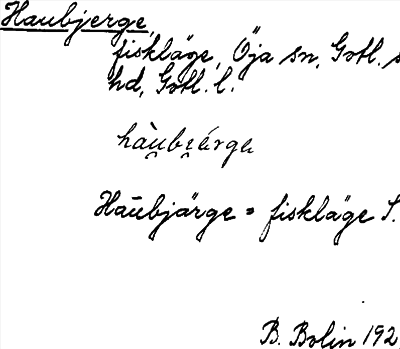 Haubjerge,
fiskläge, Öja sn, Gotl. s
hd, Gotl. l.
Haūbjärge = fiskläge S.
B. Bolin 192